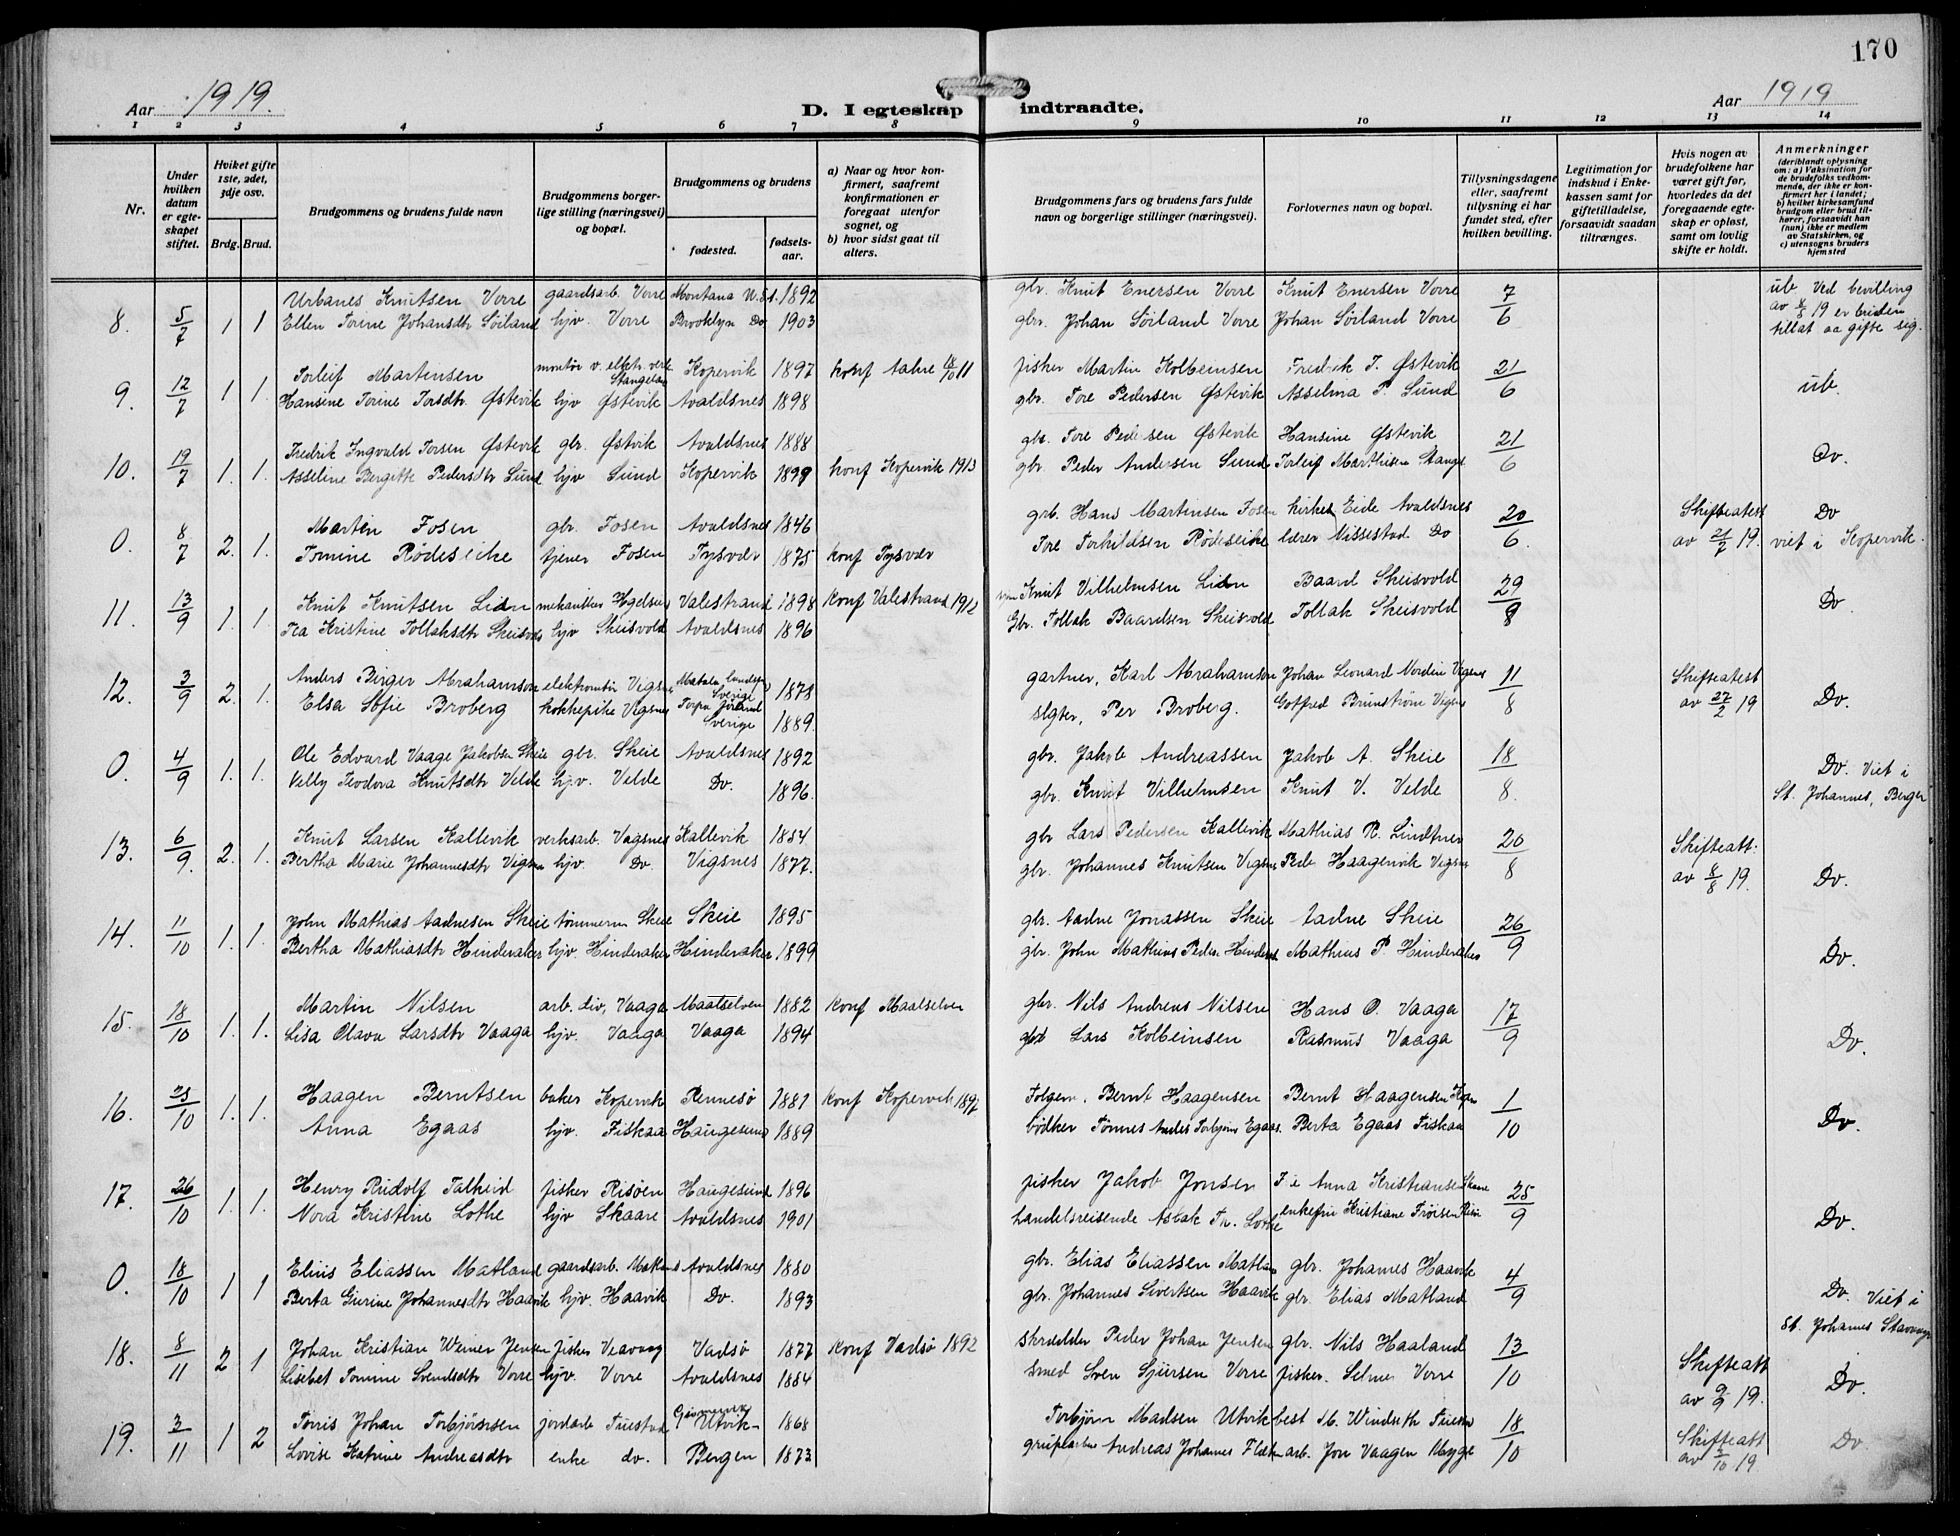 170
Aar 1919.
D. I egteskap indtraadte.
Aar 1919
1 2 3 4 5 6 7 8 9 10 11 12 13 14
Nr.
Under hvilken datum er egteskapet stiftet.
Hviket gifte 1ste, 2det, 3dje osv.
Brdg. Brud.
Brudgommens og brudens fulde navn
Brudgommens borgerlige stilling (næringsvei) og bopæl.
Brudgommens og brudens
fødested.
fødselsaar.
a) Naar og hvor konfirmert, saafremt konfirmationen er foregaat utenfor sognet, og
b) hvor sidst gaat til alters.
Brudgommens fars og brudens fars fulde navn og borgerlige stillinger (næringsvei).
Forlovernes navn og bopæl.
Tillysningsdagene eller, saafremt tillysning ei har fundet sted, efter hvilken bevilling.
Legitimation for indskud i Enkekassen samt for giftetilladelse, forsaavidt saadan tiltrænges.
Hvis nogen av brudefolkene har været gift før, hvorledes da det foregaaende egteskap er opløst, samt om lovlig skifte er holdt.
Anmerkninger
(deriblandt oplysning om: a) Vaksination for de brudefolks vedkommende, der ikke er konfirmert her i landet; b) hvilket kirkesamfund brudgom eller brud tilhører, forsaavidt han (hun) ikke er medlem av Statskirken, og c) utensogns bruders hjemsted
8. 5/7 1 1 Urbanes Knutsen Vorre gaardsarb. Vorre Montana U.S.A. 1892 gbr. Knut Enersen Vorre Knut Enersen Vorre 7/6 ub Ved bevilling
Ellen Torine Johansdtr Søiland hjv. Vorre Brooklyn Do. 1903 gbr. Johan Søiland Vorre Johan Søiland Vorre av 19 er bruden
tillat aa gifte sig.
9. 12/7 1 1 Torleif Martinsen montør v. elektr. verk Stangeland Kopervik 1897 konf Aahre 11 fisker Martin Kolbeinsen Fredrik T. Østevik 21/6 ub.
Hansine Torine Torsdtr Østevik hjv Østevik Avaldsnes 1898 gbr. Tore Pedersen Østevik Asselina P. Sund
10. 19/7 1. 1. Fredrik Ingvald Torsen Østevik gbr. Østvik Avaldsnes 1888 gbr. Tore Pedersen Østevik Hansine Østevik 21/6 Do.
Asseline Bergitte Pedersdtr Sund hjv Sund Kopervik 1899 konf Kopervik 1913 gbr. Peder Andersen Sund Torleif Marthisen Stangel
0. 8/7 2. 1. Martin Fosen gbr. Fosen Avaldsnes 1846 grb. Hans Martinsen Fosen kirkes. Eide Avaldsnes 20/6 Skifteatest Do
Tomine Rødeseike tjener Fosen Tysvær 1875 konf Tysvær Tore Torkildsen Rødeseike lærer Nissestad Do av 21/7 19. viet i Kopervik.
11. 13/9 1. 1. Knut Knutsen Lidn 1898 konf Valestrand 1912 Knut Vilhelmsen Lidn Baard Skeisvold 29/8 Do.
Tea Kristine Tollaksdtr Skeisvold hjv Skeisvold Avaldsnes 1896 Gbr. Tollak Baardsen Skeisvold Tollak Skeisvold
12. 3/9 2. 1. Anders Birger Abrahamson elektromtør Vigsnes Sverige 1878 gartner, Karl Abrahamson Johan Leonard Nordin Vigsnes 11/8 Skifteatest Do.
Elsa Sofie Broberg kokkepike Vigsnes Sverige 1889. slgter, Per Broberg. Gotfred Brunstrøm Vigsnes av 27/2 19
0. 4/9 1. 1. Ole Edvard Vaage Jakobsen Skeie gbr. Skeie Avaldsnes 1892 gbr. Jakob Andreassen Jakob A. Skeie 18/8. Do. Viet i
Velly Teodora Knutsdtr Velde hjv. Velde Do. 1896. gbr. Knut Vilhelmsen Knut V. Velde St. Johannes, Bergen
13. 6/9. 2. 1. Knut Larsen Kallevik verksarb. Vagsnes Kallevik 1854 gbr Lars Pedersen Kallevik Mathias R. Lindtner 20/8 Skifteatt. Do.
Bertha Marie Johannesdtr Vigsnes hjv. Do. Vigsnes 1877. gbr. Johannes Knutsen Vigsnes Peder Haagenvik Vigsnes av 8/8 19.
14. 11/10 1. 1. John Mathias Aadnesen Skeie tømmerm Skeie Skeie 1895 gbr. Aadne Jonassen Skeie Aadne Skeie 26/9 Do.
Bertha Mathiasdtr Hinderaker hjv. Hinderaker Hinderaker 1899 gbr. John Mathias Peder Hinderak Mathias P. Hinderaker
15. 18/10 1. 1. Martin Nilsen arb. div, Vaaga Maalselven 1882 konf Maalselven gbr. Nils Andreas Nilsen Hans O. Vaaga 17/9 Do.
Lisa Olava Larsdtr Vaaga hjv. Vaaga Vaaga 1894 Lars Kolbeinsen Rasmus Vaaga
16. 25/10 1. 1. Haagen Berntsen baker Kopervik Rennesø 1881 konf Kopervik 1897 Folgem. Bernt Haagensen Bernt Haagensen Kopn 1/10 Do.
Anna Egaas hjv. Fiskaa Haugesund 1889 bødker Tønnes Andes Torbjøns Egaas. Berta Egaas Fiskaa
17. 26/10 1. 1. Henry Rudolf Talheid fisker Risøen Haugesund 1896 fisker Jakob Jonsen Anna Kristianse 25/9 Do.
Nora Kristine Lothe hjv Skaare Avaldsnes 1901 handelsreisende Aslak Th. Lothe enkefru Kristiane Trøisen
0. 18/10 1 1 Elius Eliassen Matland gaardsarb. Matland Avaldsnes 1880 gbr. Elias Eliassen Matland gbr. Johanes Haavik 4/9 Do. Viet i
Berta Gurine Johannesdtr Haavik hjv. Haavik Do. 1893 gbr. Johannes Sivertsen Haavik gbr. Elias Matland St. Johanes Stavang
18. 8/11 2 1 Johan Kristian Werner Jensen fisker Veavaag Vadsø 1877 konf Vadsø 1892 skrædder Peder Johan Jensen gbr. Nils Haaland 13/10 Skifteatt Do.
Lisebet Tomine Svendsdtr Vorre hjv. Vorre Avaldsnes 1884 smed Sven Sjursen Vorre fisker. Selmer Vorre av 19.
19. 3/11 1 2 Torris Johan Torbjørnsen jordarb Tuestad Utvik 1868 Torbjørn Madsen Utvik best M. Windseth 18/10 Skifteatt Do
Lovise Katrine Andreasdtr enke do. Bergen 1873 Andreas Johannes Flek arb. Jon Vaagen Myge av 19